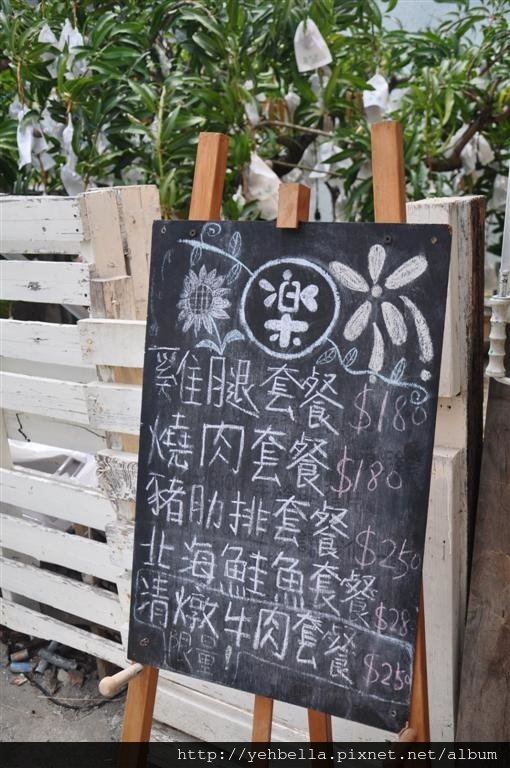 樂
雞腿套餐 $180
燒肉套餐 $180
豬肋排套餐 $250
北海鮭魚套餐 $28
清燉牛肉套餐 $250
限量!
http://yehbella.pixnet.net/album